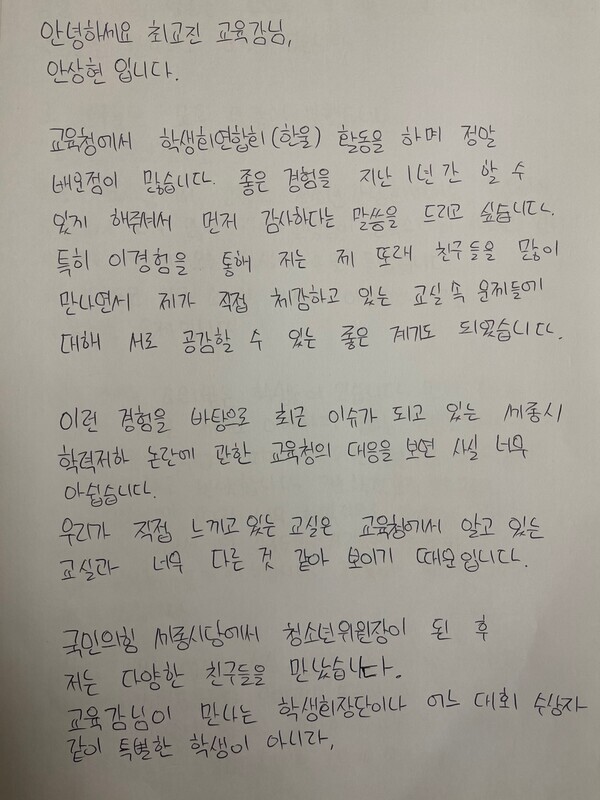 안녕하세요 최교진 교육감님,
안상현 입니다.
교육청에서 학생회연합회(한울) 활동을 하며 정말
배운점이 많습니다. 좋은 경험을 지난 1년 간 할 수
있게 해주셔서 먼저 감사하다는 말씀을 드리고 싶습니다.
특히 이경험을 통해 저는 제 또래 친구들을 많이
만나면서 제가 직접 체감하고 있는 교실 속 문제들에
대해 서로 공감할 수 있는 좋은 계기도 되었습니다.
이런 경험을 바탕으로 최근 이슈가 되고 있는 세종시
학력저하 논란에 관한 교육청의 대응을 보면 사실 너무
아쉽습니다.
우리가 직접 느끼고있는 교실은 교육청에서 알고 있는
교실과 너무 다른 것 같아 보이기 때문입니다.
국민의힘 세종시당에서 청소년위원장이 된 후
저는 다양한 친구들을 만났습니다.
교육감님이 만나는 학생회장단이나 어느 대회 수상자
같이 특별한 학생이 아니라,